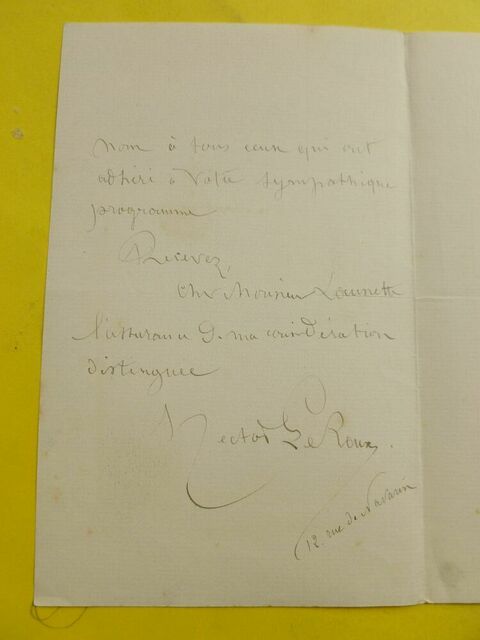 nom à tous ceux qui ont
adhéré à votre sympathique
programme
Recevez,
cher Monsieur Lounette
l'assurance de ma considération
distinguée
Hector Le Roux.
12. rue de Navarin